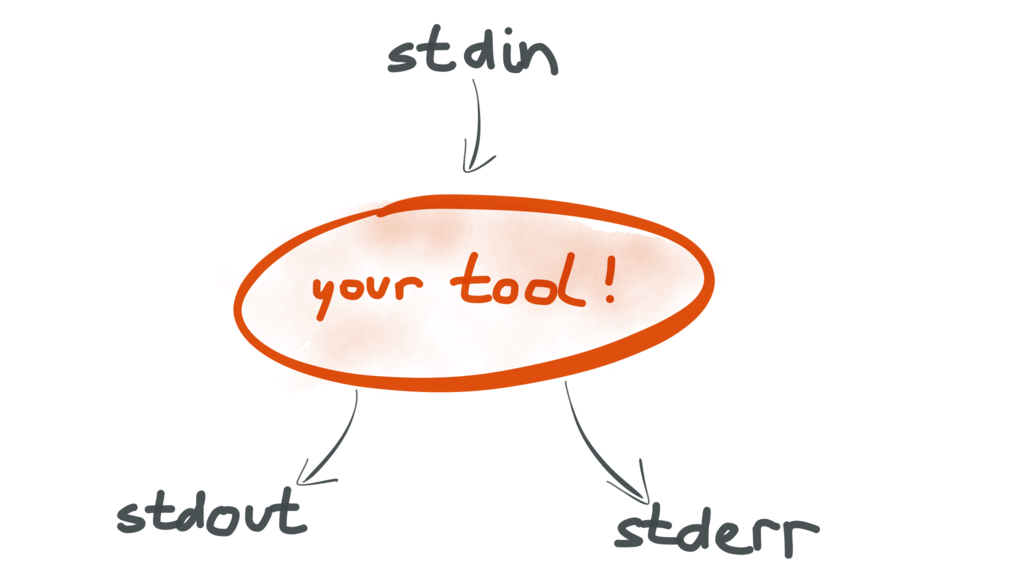 stdin
your tool!
stdout
stderr